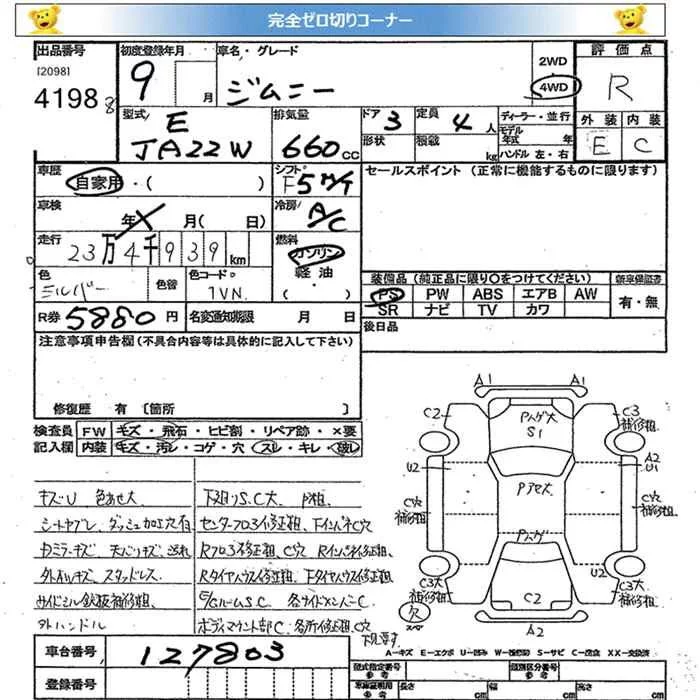 完全ゼロ切りコーナー
出品番号 初度登録年月 車名・グレード 2WD 評価点
[2098] 9 月 ジムニー 4WD R
4198 8
型式 E 排気量 ドア 3 定員 4 人 ディーラー・並行 外装 内装
JA22W 660 cc 形状 積載 kg モデル年式 年 ハンドル 左・右 E C
車歴 シフト セールスポイント (正常に機能するものに限ります)
自家用・( ) F5M/T
車検 年 月( 日) 冷房 A/C
走行 23万4千939 km 燃料 ガソリン
軽油
・( )
色 シルバー 色替 色コード 1VN. 装備品(純正品に限り○をつけてください) 新車保証書
PS PW ABS エアB AW 有・無
SR ナビ TV カワ
R券 5880 円 名変通知期限 月 日 後日品
注意事項申告欄(不具合内容等は具体的に記入して下さい)
修復歴 有 [箇所 ]
検査員 FW キズ・飛石・ヒビ割・リペア跡・×要
記入欄 内装 キズ・汚レ・コゲ・穴・スレ・キレ・破レ
キズU 色あせ大 下廻りS.C大 P粗
シートヤブレ、ダッシュ加工穴有 センターフロア修正粗、FインパネC穴
ワミラーキズ 天バリキズ Rフロア修正粗、C穴 Rインパネ修正粗、
外ホイルキズ スタッドレス Rタイヤハウス修正粗、Fタイヤハウス修正粗、
サイドシル鉄板補修粗、 E/GルームS.C 各サイドメンバーC
外ハンドル ボディマウント部C 各所修正粗 C穴
下見要す
A1 A1
C2 Pハゲ大 C3
S1 補修粗
U2 A2
U1
Pアセ大 C穴
C穴 補修粗
補修粗
Pハゲ
U2
C3大 C3大
補修粗 C2 補修粗
欠
スペア A2
A−キズ E−エクボ U−凹み W−補修跡 S−サビ C−腐食 XX−交換済
車台番号 127803
登録番号
型式指定番号 参考 類別区分番号 参考
車庫証明用 参考 長さ cm 幅 cm 高さ cm